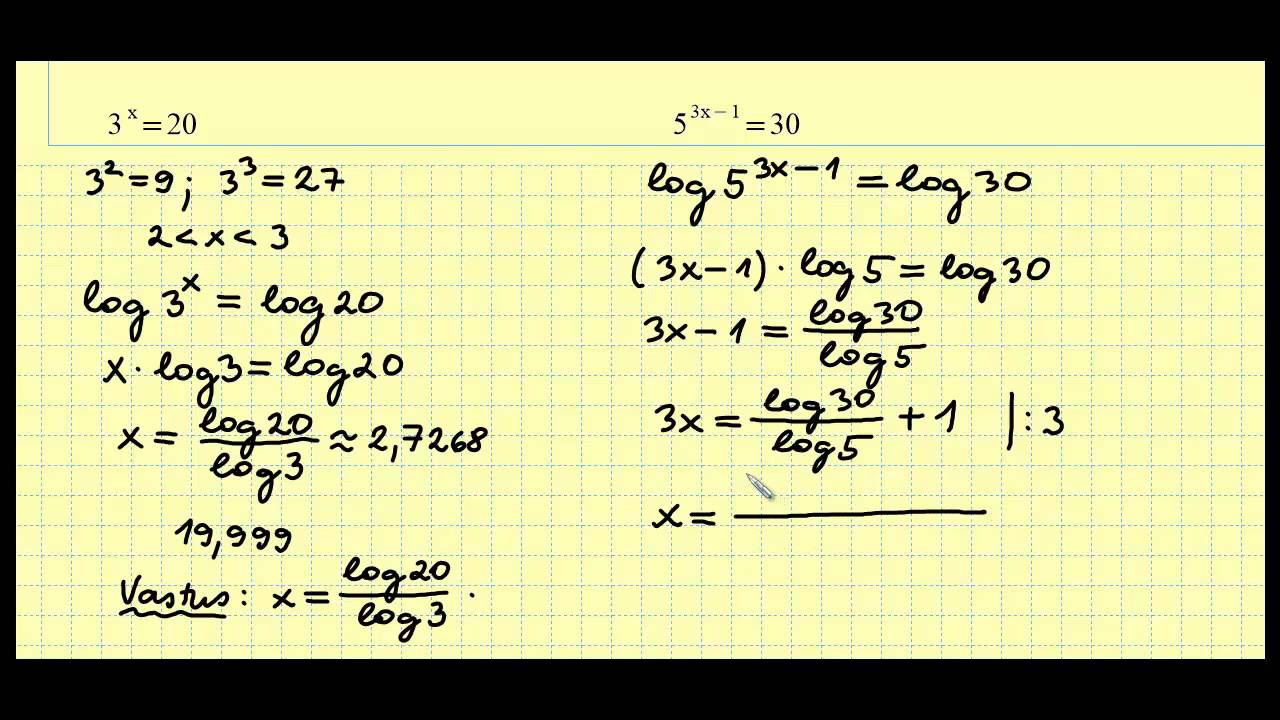 3^x = 20
3² = 9 ; 3³ = 27
2 < x < 3
log 3^x = log 20
x · log 3 = log 20
x = log 20 / log 3 ≈ 2,7268
19,999
Vastus: x = log 20 / log 3 .
5^(3x − 1) = 30
log 5^(3x − 1) = log 30
(3x − 1) · log 5 = log 30
3x − 1 = log 30 / log 5
3x = log 30 / log 5 + 1 | : 3
x =